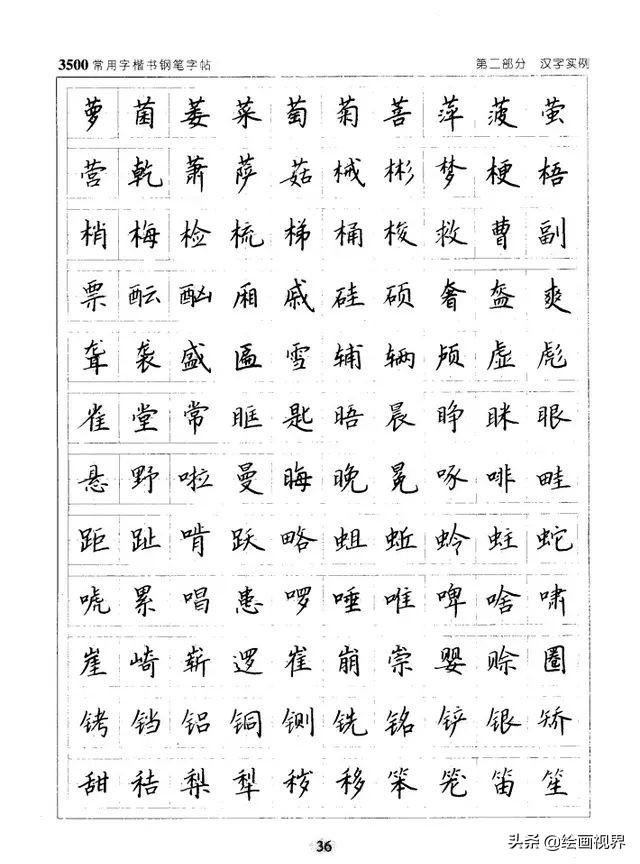 3500常用字楷书钢笔字帖 第二部分 汉字实例
萝 菌 萎 菜 萄 菊 菩 萍 菠 萤
营 乾 萧 萨 菇 械 彬 梦 梗 梧
梢 梅 检 梳 梯 桶 梭 救 曹 副
票 酝 酗 厢 戚 硅 硕 奢 盔 爽
聋 袭 盛 匾 雪 辅 辆 颅 虚 彪
雀 堂 常 眶 匙 晤 晨 睁 眯 眼
悬 野 啦 曼 晦 晚 冕 啄 啡 畦
距 趾 啃 跃 略 蛆 蚯 蛉 蛀 蛇
唬 累 唱 患 啰 唾 唯 啤 啥 啸
崖 崎 崭 逻 崔 崩 崇 婴 赊 圈
铐 铛 铝 铜 铡 铣 铭 铲 银 矫
甜 秸 梨 犁 秽 移 笨 笼 笛 笙
36
头条@绘画视界